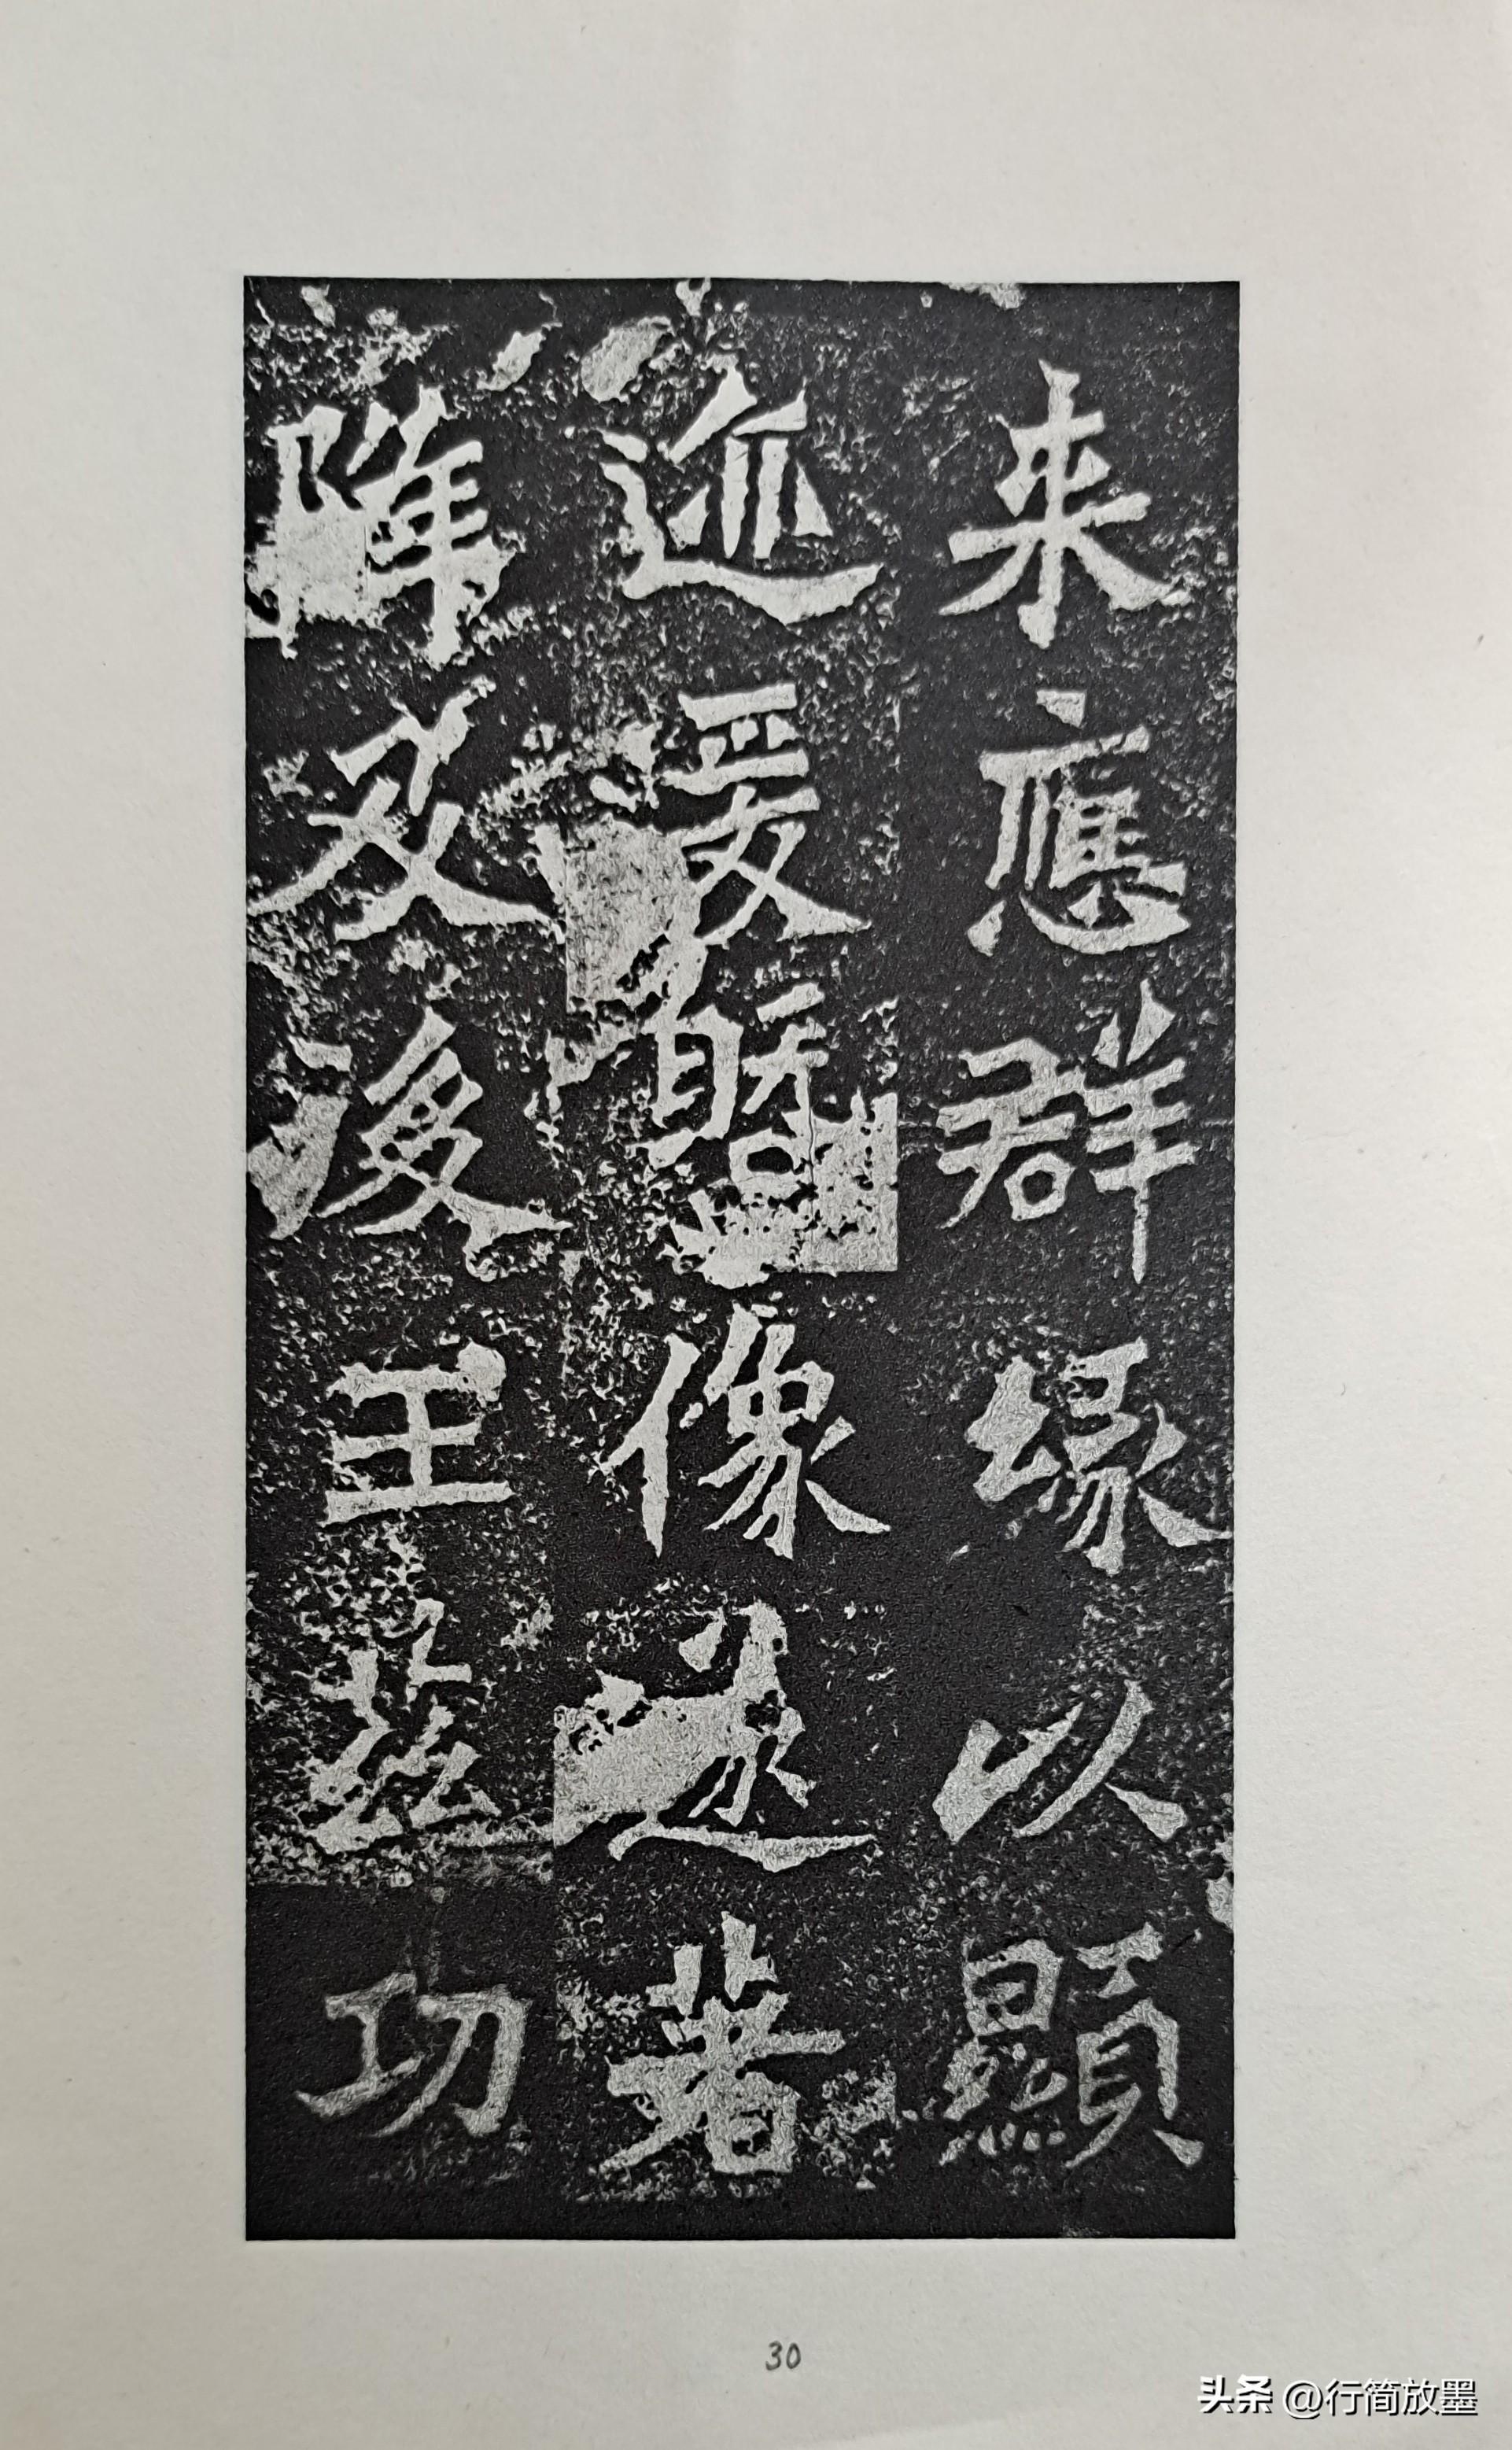 来應群緣以顯
迹爰暨像遂著
降及後王茲功
30
头条 @行简放墨